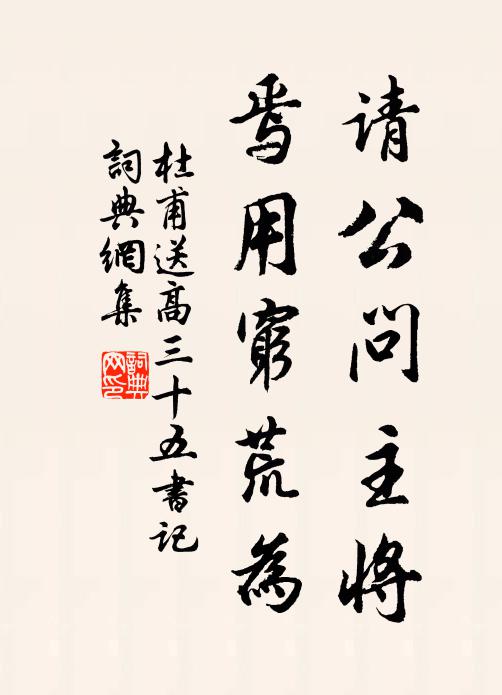 请公问主将
焉用穷荒為
杜甫送高三十五書记
詞典網集
詞典
网印